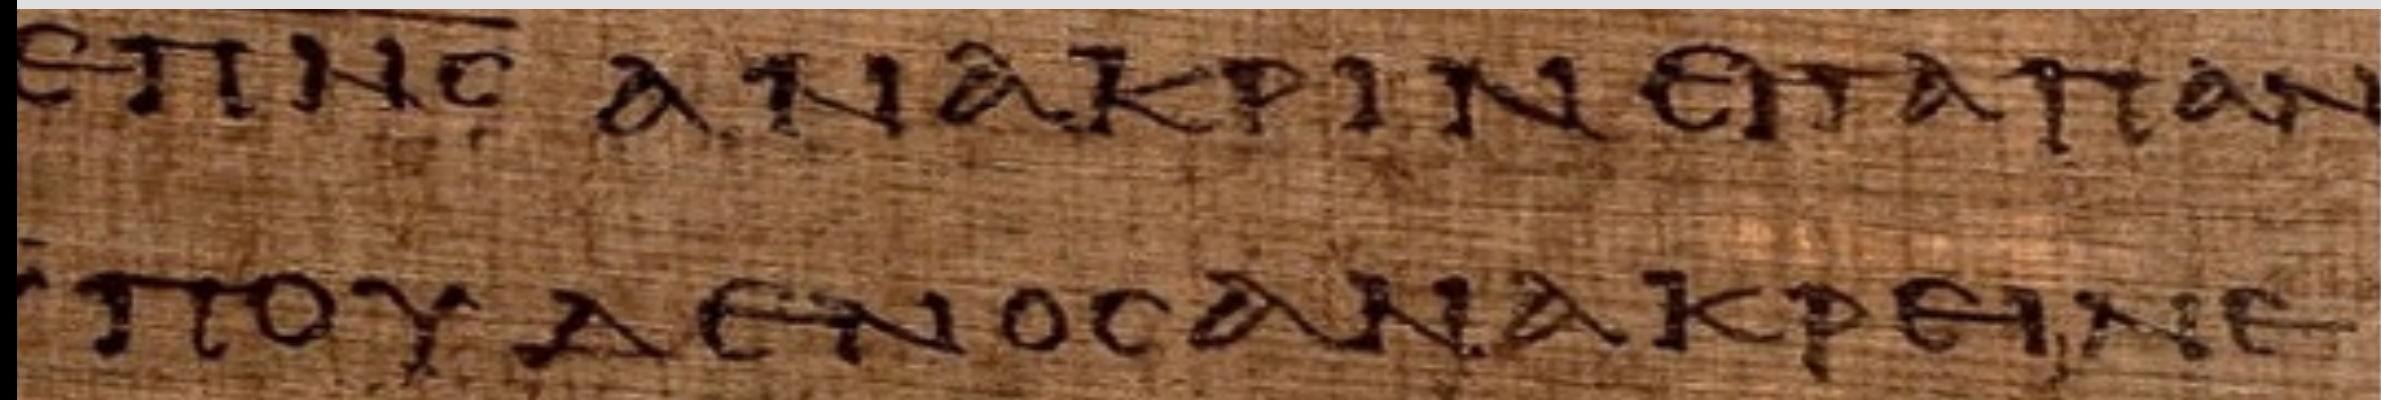 ε π̅ν̅ς̅ ανακριν ει τα παν
υπ ουδενος ανακρεινε